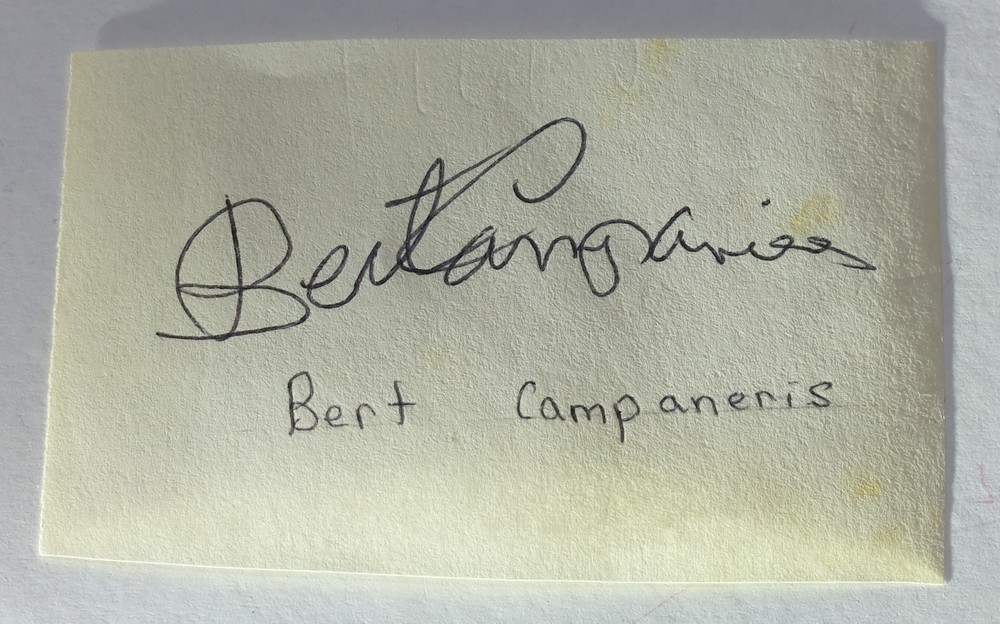 Bert Campaneris
Bert Campaneris